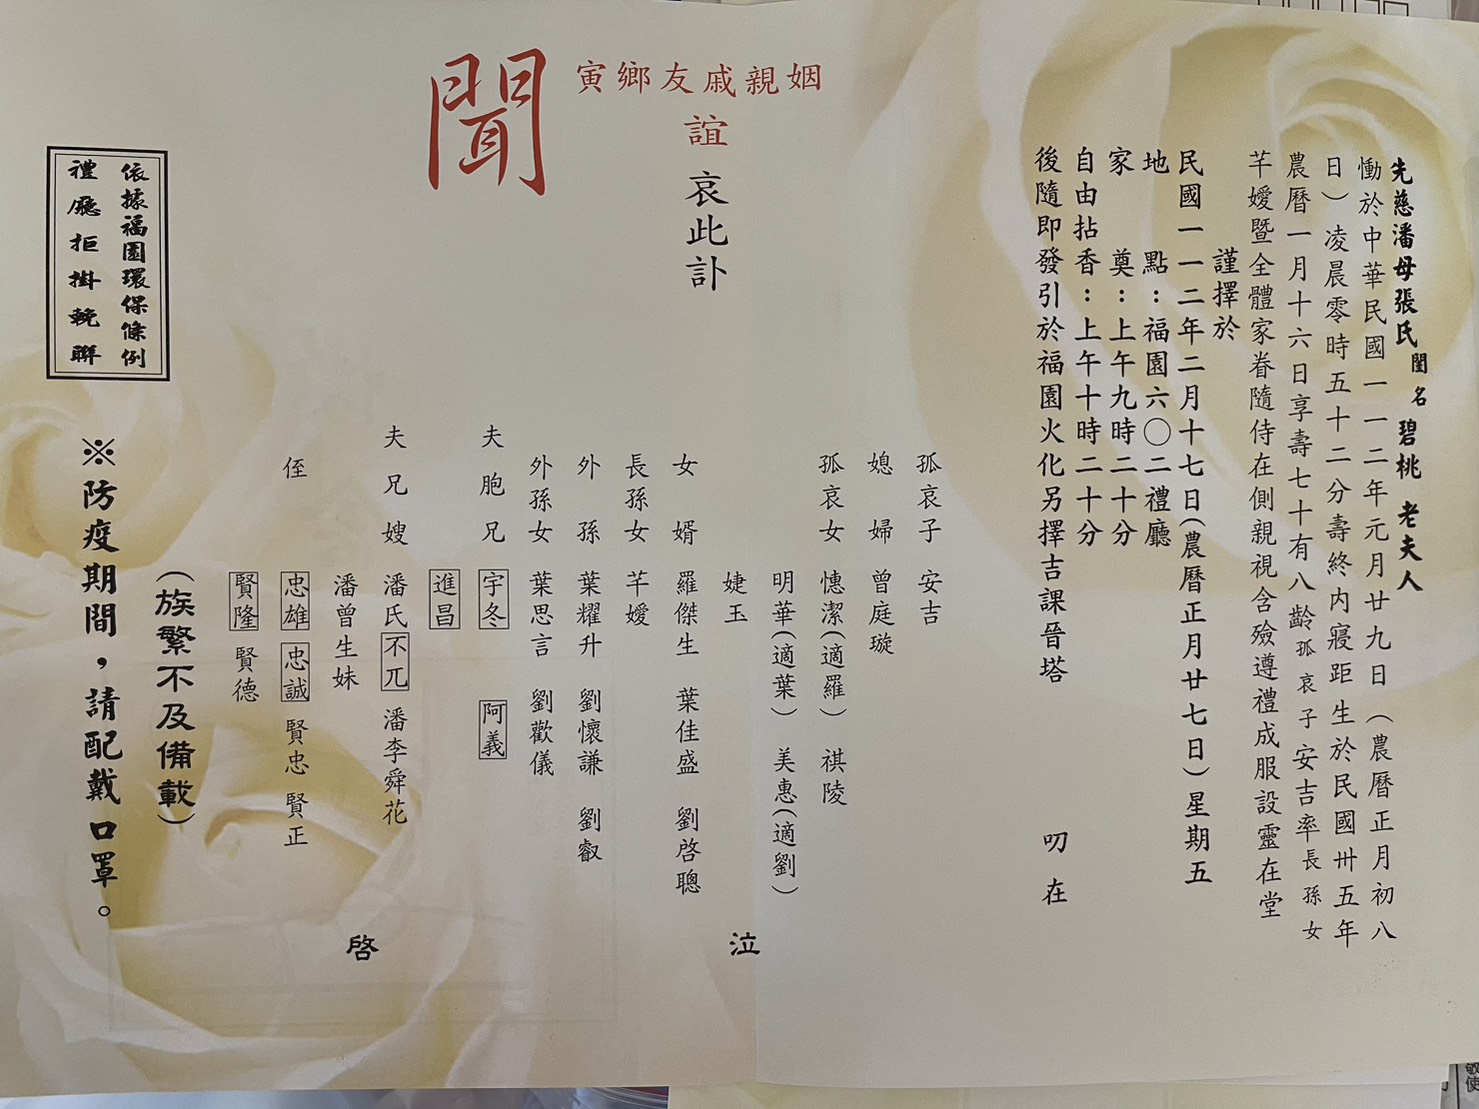 先慈潘母張氏閨名碧桃老夫人
慟於中華民國一一二年元月廿九日（農曆正月初八
日）凌晨零時五十二分壽終內寢距生於民國卅五年
農曆一月十六日享壽七十有八齡孤哀子安吉率長孫女
芊嬡暨全體家眷隨侍在側親視含殮遵禮成服設靈在堂
謹擇於
民國一一二年二月十七日(農曆正月廿七日)星期五
地點：福園六〇二禮廳
家奠：上午九時二十分
自由拈香：上午十時二十分
後隨即發引於福園火化另擇吉課晉塔
叨在
孤哀子 安吉
媳婦 曾庭璇
孤哀女 憓潔(適羅) 祺陵
明華(適葉) 美惠(適劉)
婕玉
女婿 羅傑生 葉佳盛 劉啓聰
長孫女 芊嬡
外孫 葉耀升 劉懷謙 劉叡
外孫女 葉思言 劉歡儀
夫胞兄 宇冬 阿義
進昌
夫兄嫂 潘氏不兀 潘李舜花
潘曾生妹
侄 忠雄 忠誠 賢忠 賢正
賢隆 賢德
泣
啓
姻親戚友鄉寅
誼哀此訃
聞
(族繁不及備載)
※防疫期間，請配戴口罩。
依據福園環保條例
禮廳拒掛輓聯